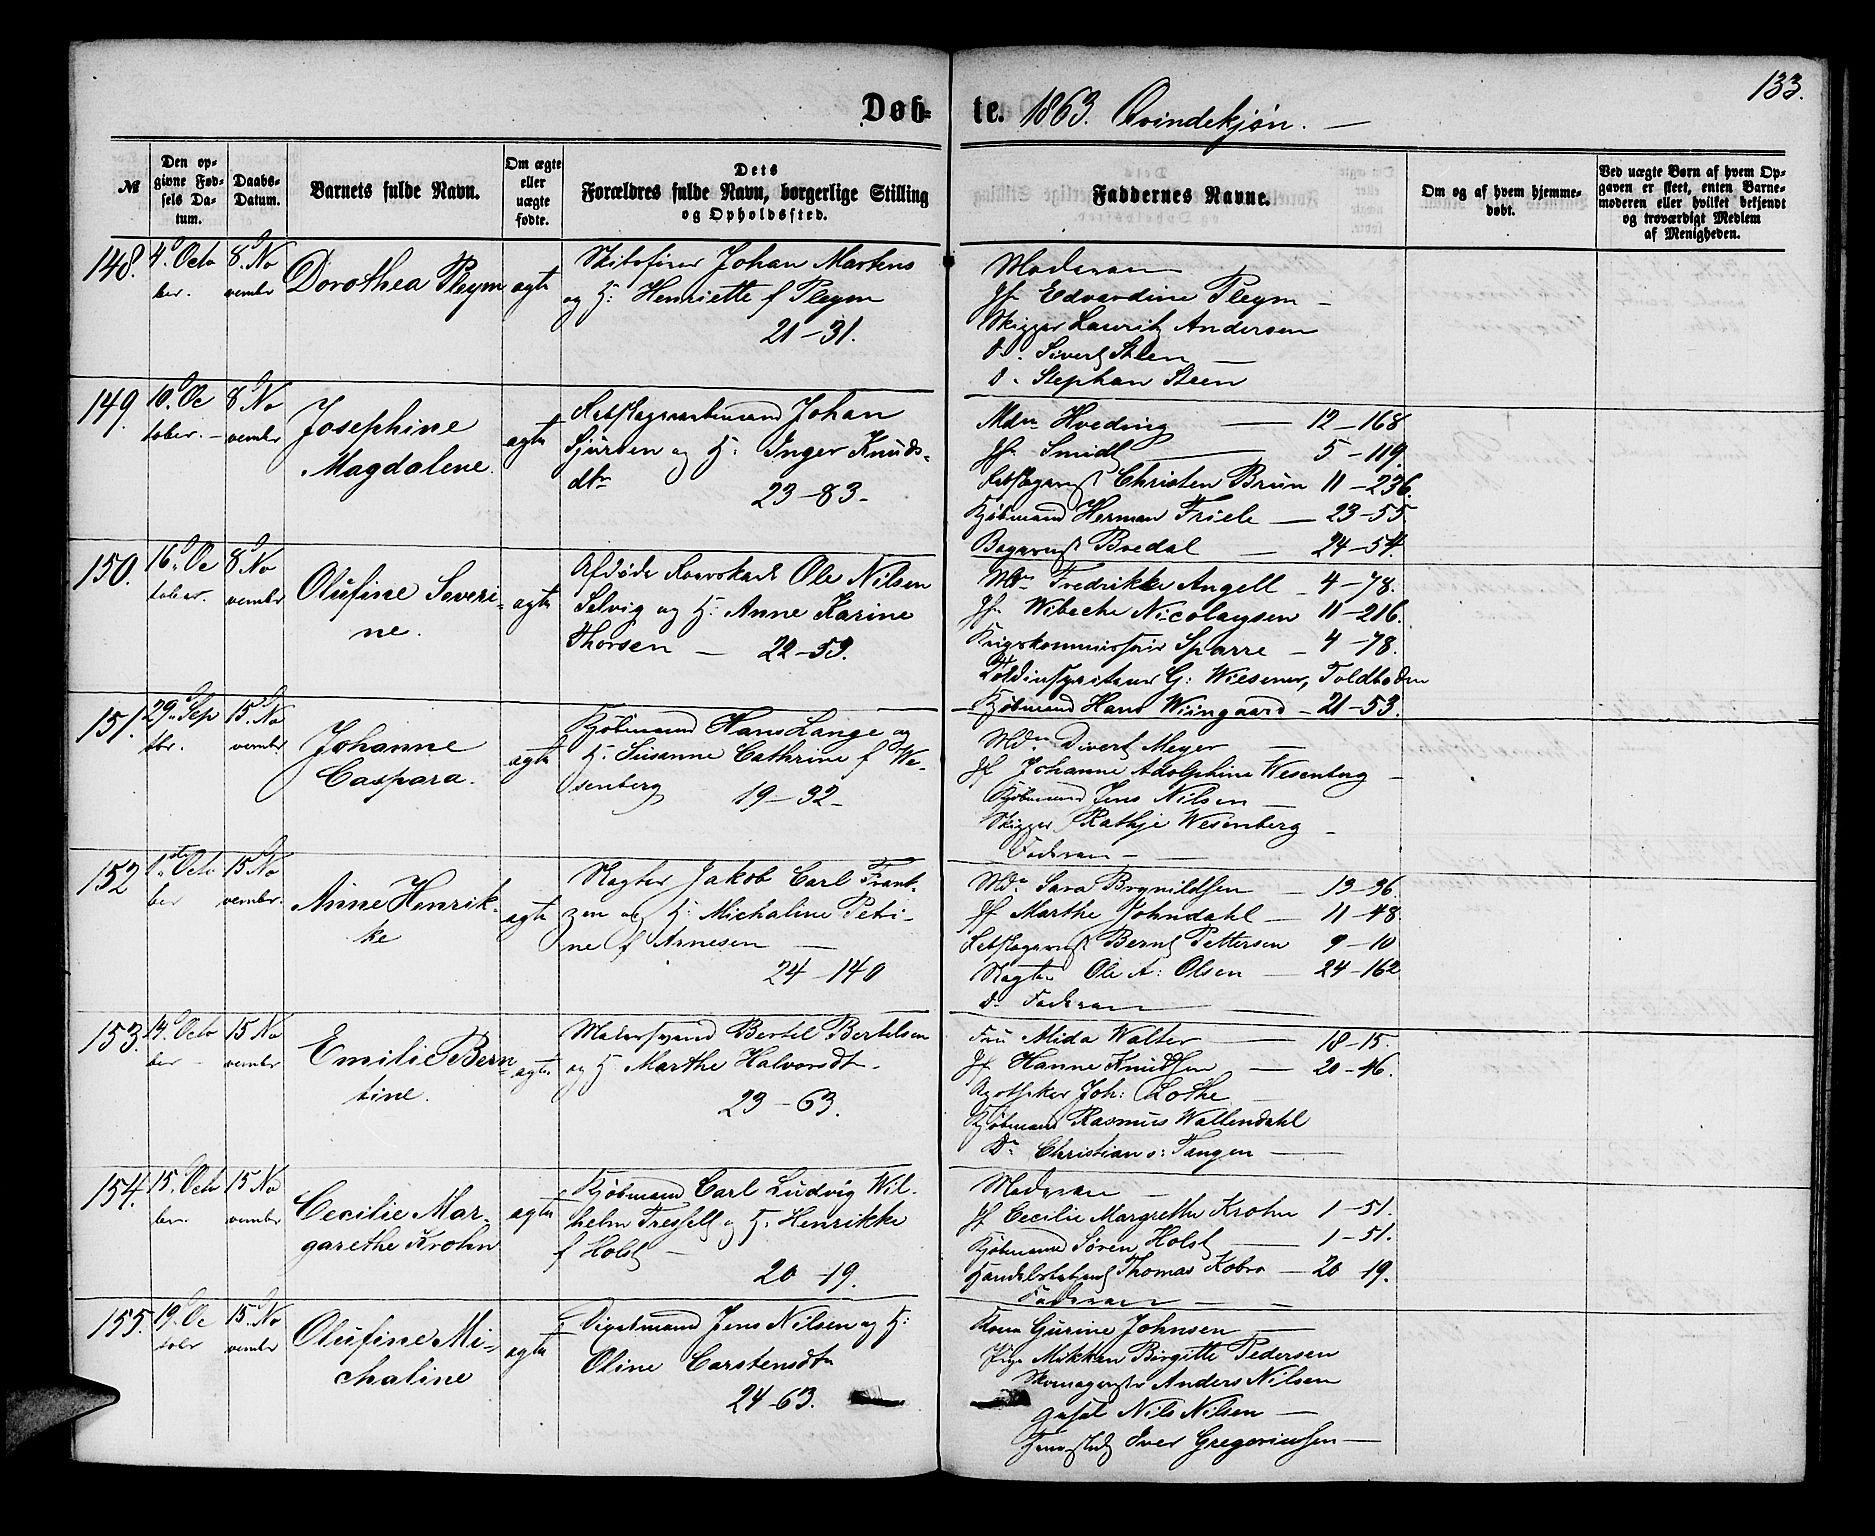 133.
Døb- te. 1863. Qvindekjøn. —
№
Den op-
givne Fød-
sels Da-
tum.
Daabs-
Datum.
Barnets fulde Navn.
Om ægte
eller
uægte
fødte.
Dets
Forældres fulde Navn, borgerlige Stilling
og Opholdssted.
Faddernes Navne.
Om og af hvem hjemme-
døbt.
Ved uægte Børn af hvem Op-
gaven er skeet, enten Barne-
moderen eller hvilket bekjendt
og troværdigt Medlem
af Menigheden.
148. 4. Octo
ber.
8. No
vembr
Dorothea Pleym
ægte
Skibsfører Johan Martens
og H: Henriette f Pleym
21-31.
Moderen
Jf. Edvardine Pleym —
Skipper Lauritz Andersen
D. Sivert Steen —
D. Stephan Steen
149. 10. Oc
tober. —
8 No
vembr
Josephine
Magdalene.
ægte
Johan
Sjursen og H: Inger Knuds-
dtr
23-83-
Mdm Hveding — 12-168
Jf. Smidt — 5-119.
Christen Brun 11-236.
Kjøbmand Herman Friele — 23-55.
Bagersv Bredal — 24-54.
150. 16. Oc
tober.
8 No
vembr
Olufine Severi-
ne.
ægte
Afdøde Ole Nilsen
Selvig og H: Anne Karine
Thorsen — 22-53.
Mdm Fredrikke Angell — 4-78.
Jf. Wibecke Nicolaysen 11-216.
Krigskommissair Sparre — 4-78.
G: Wiesener, Toldboden
Kjøbmand Hans Wiingaard — 21-53.
151. 29. Sep
tbr.
15. No
vembr.
Johanne
Caspara.
ægte
Kjøbmand Hans Lange og
H. Susanne Cathrine f We-
senberg 19-32-
Mdm Sivert Meyer —
Jf Johanne Adolphine Wesenberg —
Kjøbmand Jens Nilsen —
Skipper Rathje Wesenberg —
Faderen —
152 1ste Octo
ber
15 No
vembr.
Anne Henrik-
ke
ægte
Slagter Jakob Carl Frant-
zen og H: Michaline Petri-
ne f Arnesen —
24-140
Md. Sara Brynildsen — 13-36.
Jf Marthe Johndahl — 11-48.
Bernt Pettersen 9-10
Slagter Ole A: Olsen — 24-162
d. Faderen —
153. 14. Octo
ber -
15 No
vembr
Emilie Bern-
tine.
ægte
Malersvend Bertel Bertelsen
og H Marthe Halvorsdtr.
23-63.
Fru Mida Walter — 18-15.
Jf Hanne Knudsen — 20-46.
Apotheker Joh: Lothe —
Kjøbmand Rasmus Wallendahl
Do Christian v: Tangen —
154. 15. Octo
ber.
15 No
vembr
Cecilie Mar-
garethe Krohn
ægte
Kjøbmand Carl Ludvig Wil-
helm Tresselt og H: Henrikke
f Holst —
20-19.
Moderen —
Jf Cecilie Margrethe Krohn 1-51.
Kjøbmand Søren Holst — 1-51.
Thomas Kobro — 20-19.
Faderen —
155. 19. Oc
tobr
15. No
vembr
Olufine Mi-
chaline
ægte
Jens Nilsen og H:
Oline Carstensdtr
24-63.
Kone Gurine Johnsen —
Pige Mikken Birgitte Pedersen
Skomagersv Anders Nilsen
Nils Nilsen —
Iver Gregoriussen —